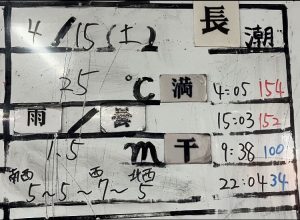 4/15(土) 長潮
25℃ 満 4:05 154
雨/曇 15:03 152
1.5m 干 9:38 100
南西 西 北西 22:04 34
5~5~7~5